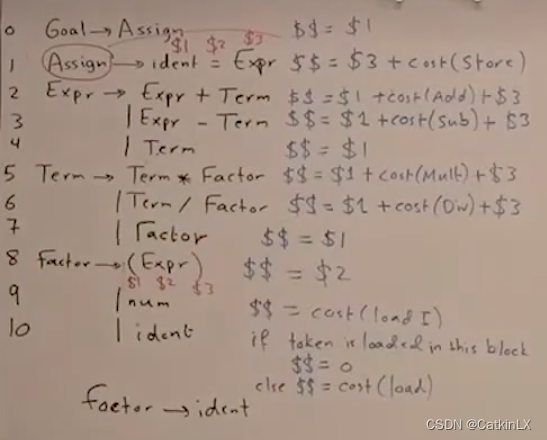 0 Goal → Assign $$ = $1
$1 $2 $3
1 Assign → ident = Expr $$ = $3 + cost(Store)
2 Expr → Expr + Term $$ = $1 + cost(Add) + $3
3 | Expr - Term $$ = $1 + cost(Sub) + $3
4 | Term $$ = $1
5 Term → Term * Factor $$ = $1 + cost(Mult) + $3
6 | Term / Factor $$ = $1 + cost(Div) + $3
7 | Factor $$ = $1
8 Factor → (Expr) $$ = $2
$1 $2 $3
9 | num $$ = cost(load I)
10 | ident if token is loaded in this block
$$ = 0
else $$ = cost(load)
Factor → ident
CSDN @CatkinLX